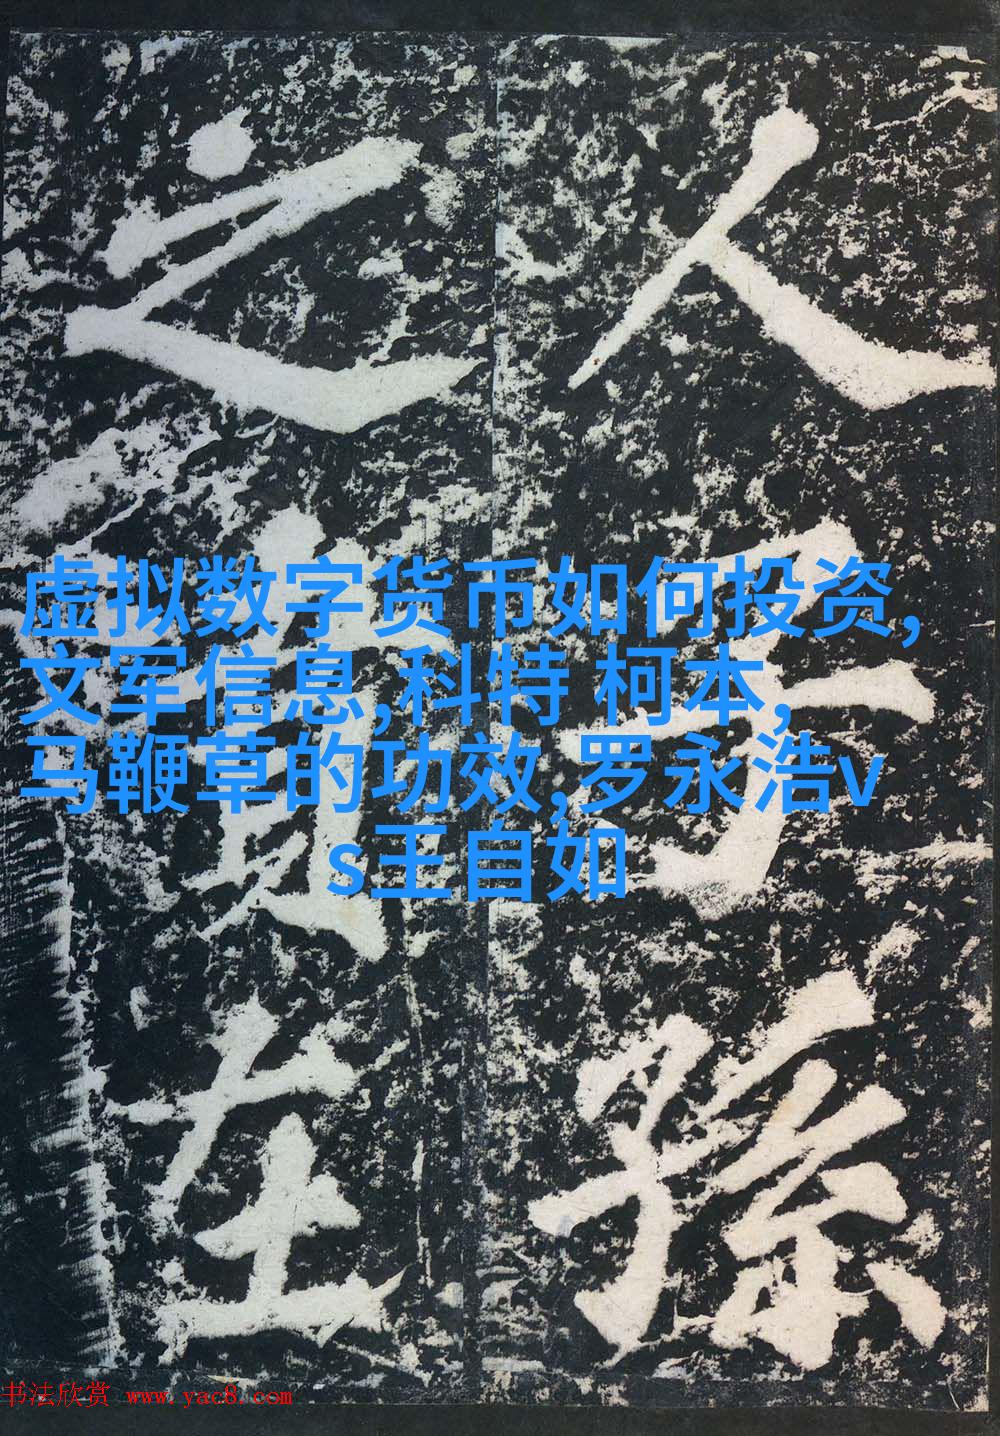 人子孫
之在
虚拟数字货币如何投资,
文军信息,科特 柯本,
马鞭草的功效,罗永浩v
s王自如
书法欣赏 www.yac8.com